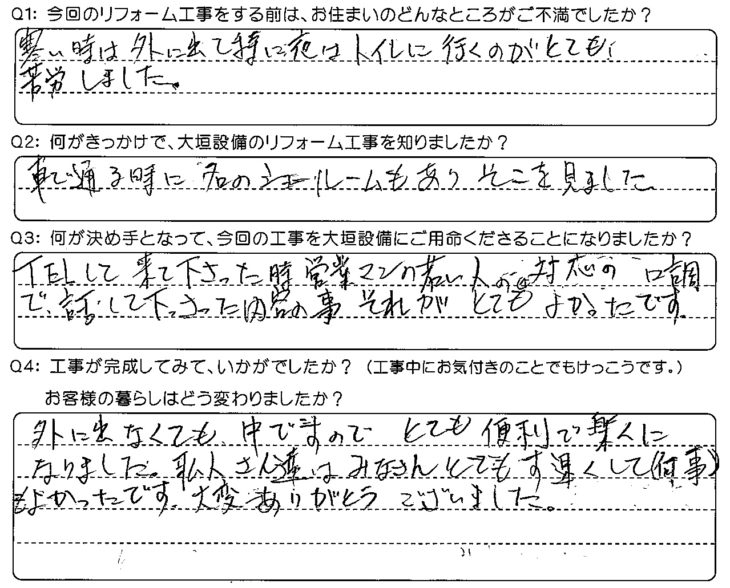 Q1: 今回のリフォーム工事をする前は、お住まいのどんなところがご不満でしたか？
寒い時は外に出て特に夜はトイレに行くのがとても
苦労しました。
Q2: 何がきっかけで、大垣設備のリフォーム工事を知りましたか？
車で通る時に 名のショールームもあり そこを見ました
Q3: 何が決め手となって、今回の工事を大垣設備にご用命くださることになりましたか？
TELして来て下さった時営業マンの若い人の対応の口調
で、話して下さった内容の事 それが とても よかったです。
Q4: 工事が完成してみて、いかがでしたか？（工事中にお気付きのことでもけっこうです。）
お客様の暮らしはどう変わりましたか？
外に出なくても 中ですので とても 便利で楽に
なりました。 さん達はみなさんとてもす早くして(何事)
もよかったです。大変ありがとう ございました。